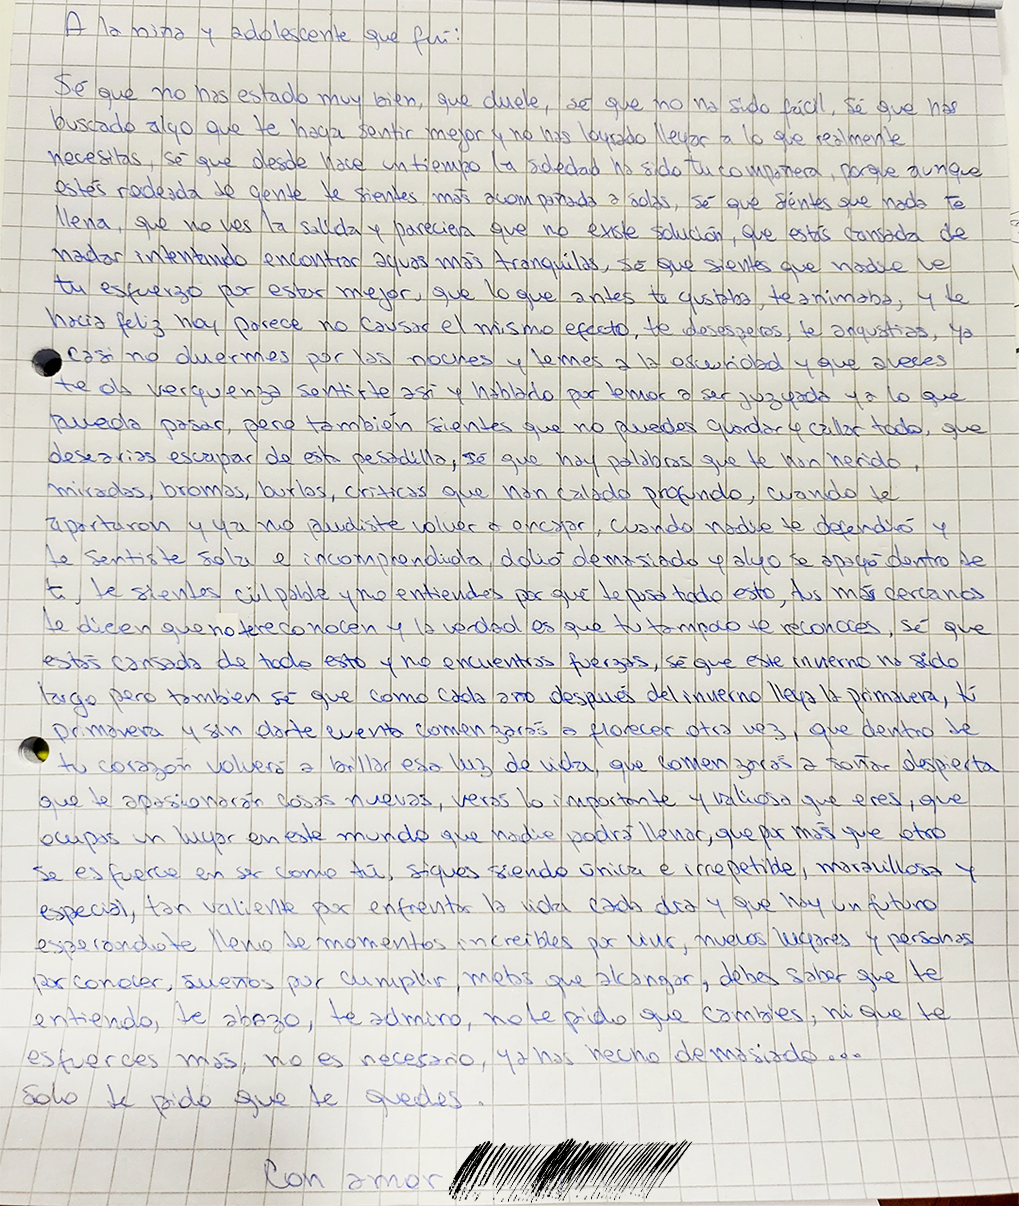 A la niña y adolescente que fui:
Sé que no has estado muy bien, que duele, sé que no ha sido fácil, sé que has
buscado algo que te haga sentir mejor y no has logrado llegar a lo que realmente
necesitas, sé que desde hace un tiempo la soledad ha sido tu compañera, porque aunque
estés rodeada de gente te sientes más acompañada a solas, sé que sientes que nada te
llena, que no ves la salida y pareciera que no existe solución, que estás cansada de
nadar intentando encontrar aguas más tranquilas, sé que sientes que nadie ve
tu esfuerzo por estar mejor, que lo que antes te gustaba, te animaba, y te
hacía feliz hoy parece no causar el mismo efecto, te desesperas, te angustias, ya
casi no duermes por las noches y temes a la oscuridad y que aveces
te da verguenza sentirte así y hablado por temor a ser juzgada y a lo que
pueda pasar, pero también sientes que no puedes guardar y callar todo, que
desearías escapar de esta pesadilla, sé que hay palabras que te han herido,
miradas, bromas, burlas, críticas que han calado profundo, cuando te
apartaron y ya no pudiste volver a encajar, cuando nadie te defendió y
te sentiste sola e incomprendida, dolió demasiado y algo se apagó dentro de
ti, te sientes culpable y no entiendes por qué te pasa todo esto, tus más cercanos
te dicen que no te reconocen y la verdad es que tu tampoco te reconoces, sé que
estás cansada de todo esto y no encuentras fuerzas, sé que este invierno ha sido
largo pero tambien sé que como cada año después del invierno llega la primavera, tú
primavera y sin darte cuenta comenzarás a florecer otra vez, que dentro de
tu corazón volverá a brillar esa luz de vida, que comenzarás a soñar despierta
que te apasionarán cosas nuevas, verás lo importante y valiosa que eres, que
ocupas un lugar en este mundo que nadie podrá llenar, que por más que otro
se esfuerce en ser como tú, sigues siendo única e irrepetible, maravillosa y
especial, tan valiente por enfrentar la vida cada día y que hay un futuro
esperandote lleno de momentos increíbles por vivir, nuevos lugares y personas
por conocer, sueños por cumplir, metas que alcanzar, debes saber que te
entiendo, te abrazo, te admiro, no te pido que cambies, ni que te
esfuerces más, no es necesario, ya has hecho demasiado...
Solo te pido que te quedes.
Con amor